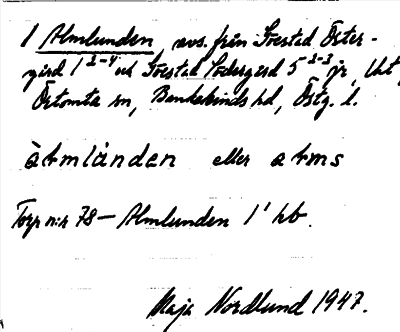 1 Almlunden, avs. från Torestad Öster-
gård 1²⁻⁴ och Torestad Södergård 5²⁻³ jr,
Örtomta sn, Bankekinds hd, Östg. l.
àtmlànden eller atms
Torp n:r 78 — Almlunden 1¹ hb.
Maja Nordlund 1947.